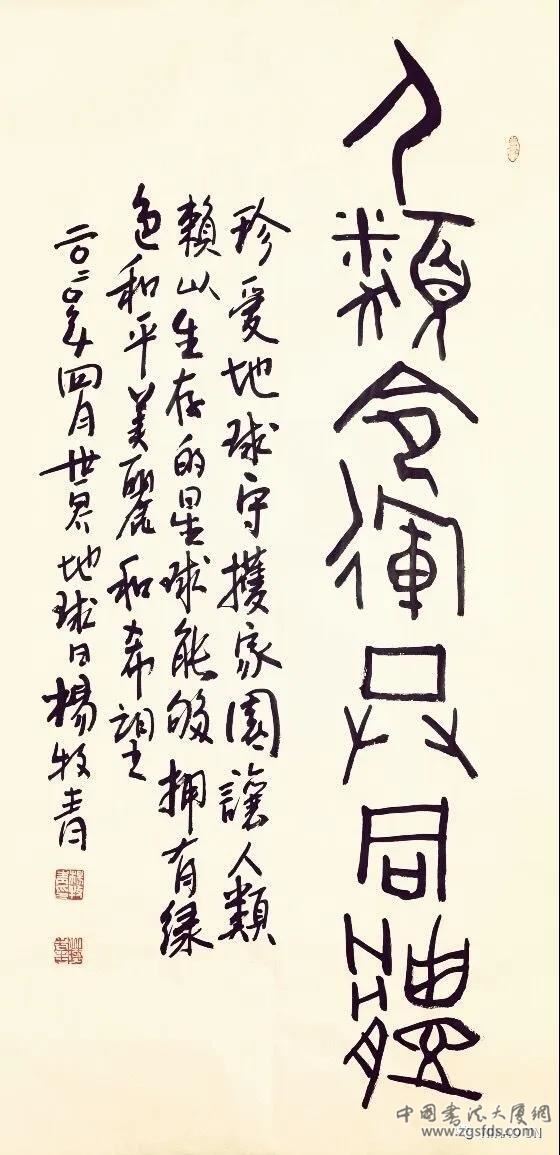 人類命運共同體
珍愛地球守護家園讓人類
賴以生存的星球能够拥有緑
色和平美麗和希望
二〇二〇年四月世界地球日楊牧青
中國書法大廈網
www.zgsfds.com